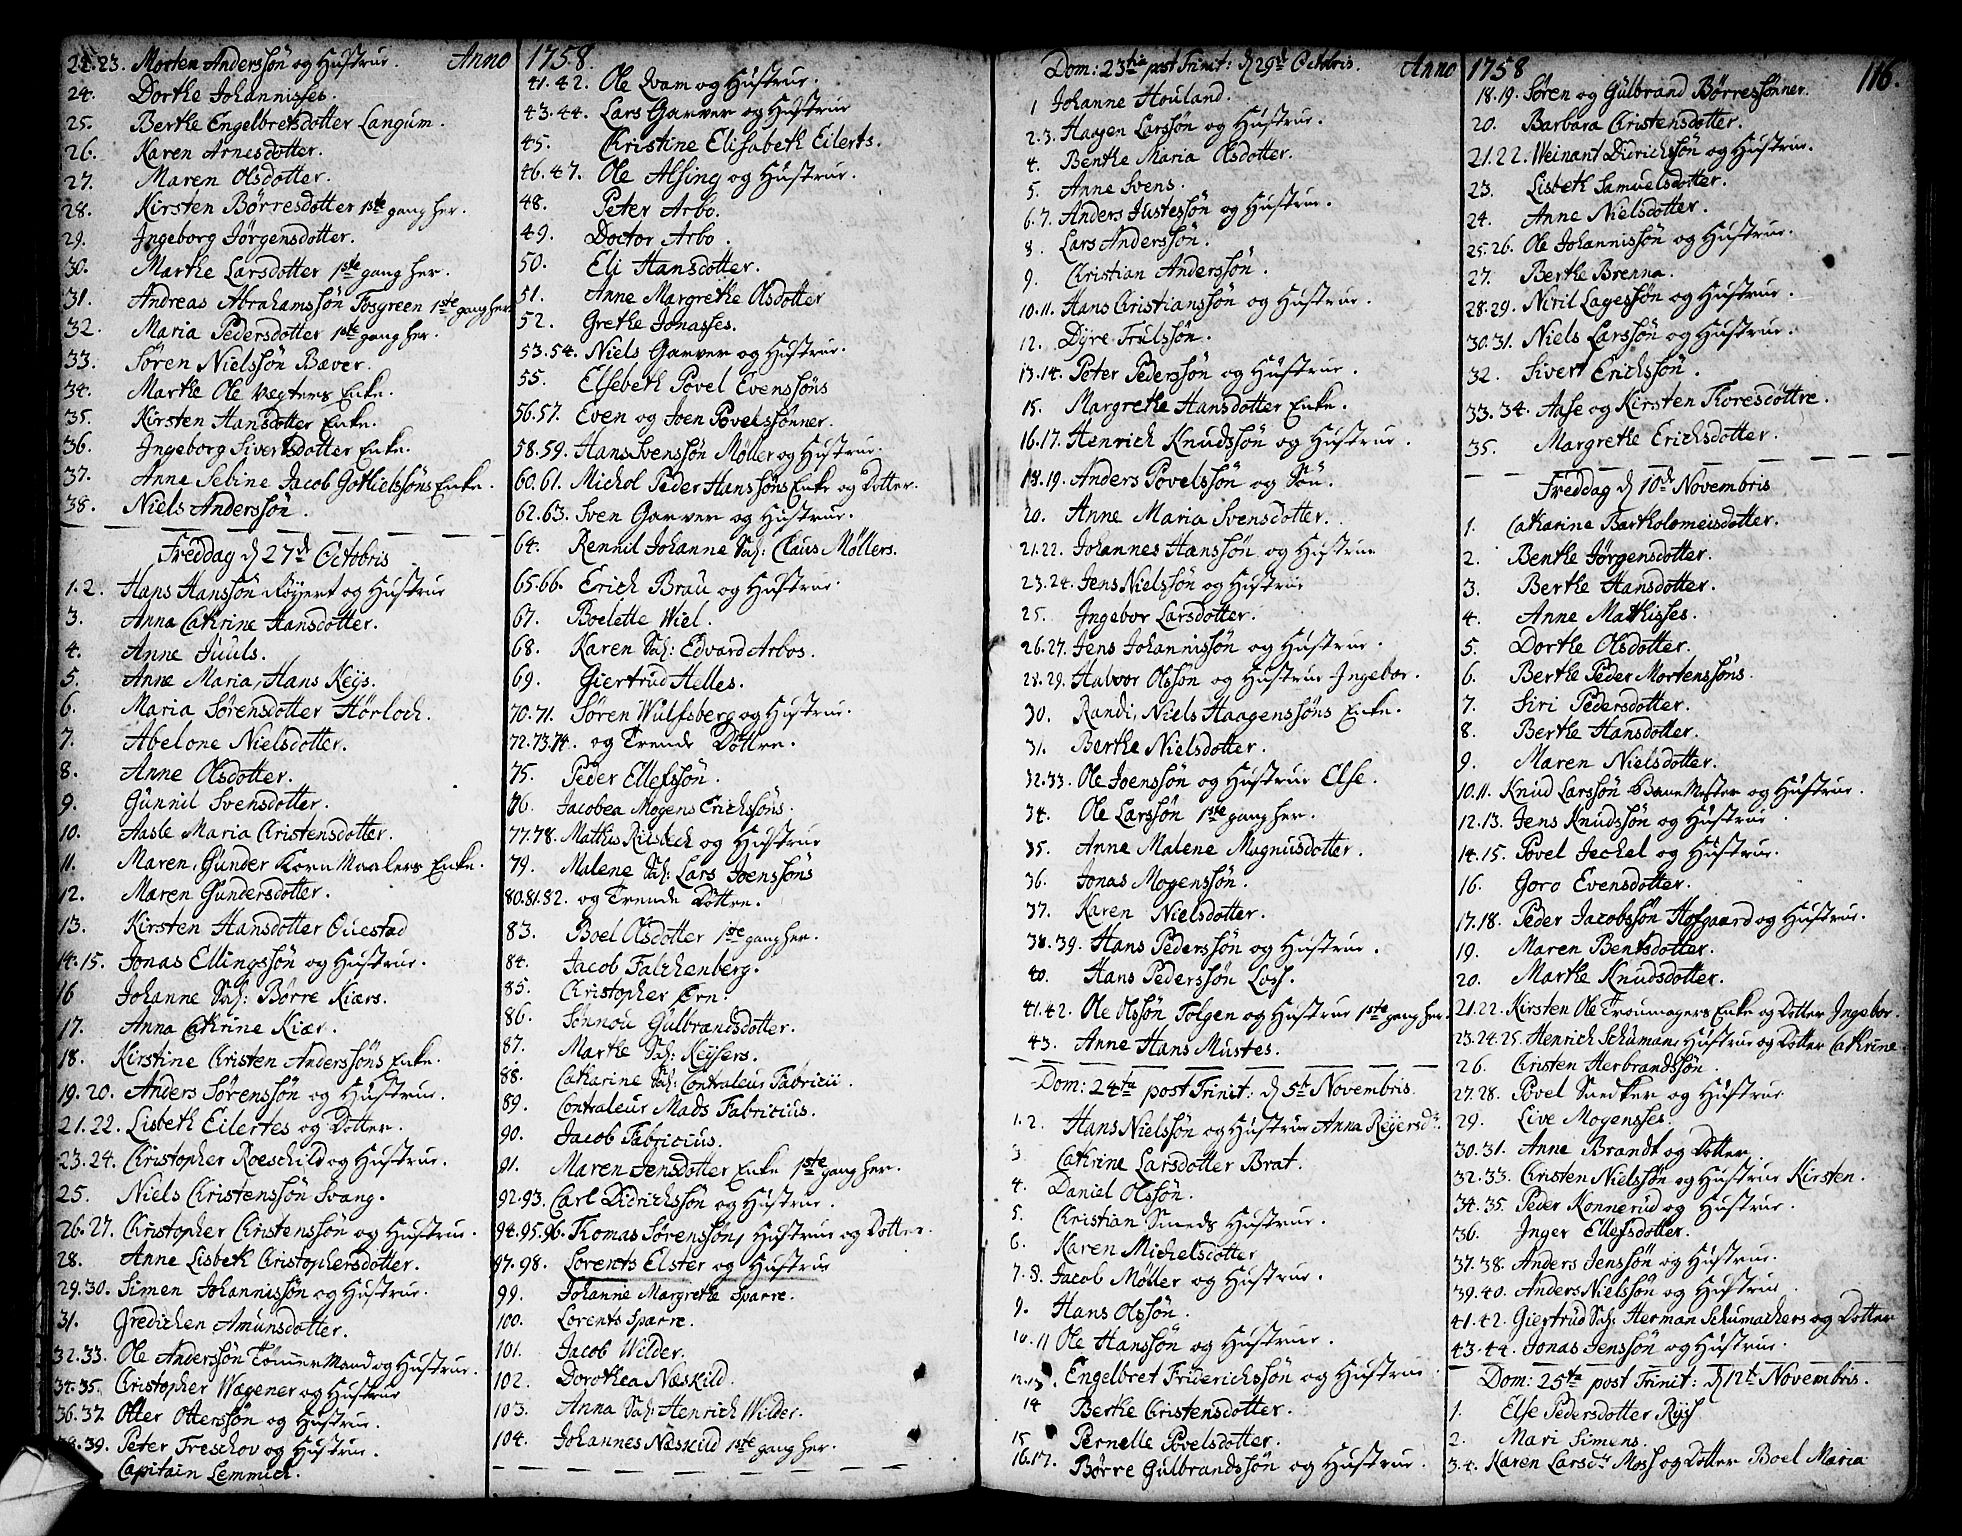 Anno 1758.
22.23. Morten Anderssøn og Hustrue.
24. Dorthe Johannisses.
25. Berthe Engelbretsdotter Langum.
26. Karen Arnesdotter.
27. Maren Olsdotter.
28. Kirsten Børresdotter 1ste gang her.
29. Ingeborg Jørgensdotter.
30. Marthe Larsdotter 1ste gang her.
31. Andreas Abrahamssøn Fosgreen 1ste gang her
32. Maria Pedersdotter 1ste gang her.
33. Søren Nielssøn Bæver.
34. Marthe Ole Vegters Enke.
35. Kirsten Hansdotter Enke.
36. Ingeborg Sivertsdotter Enke.
37. Anne Sebine Jacob Gotlielssøns Enke.
38. Niels Anderssøn.
Freddag d 27d Octobris
1.2. Hans Hanssøn Røyert og Hustrue
3. Anna Cathrine Hansdotter.
4. Anne Juuls.
5. Anne Maria, Hans Keys.
6. Maria Sørensdotter Hørloch.
7. Abelone Nielsdotter.
8. Anne Olsdotter.
9. Gunnil Svensdotter.
10. Aasle Maria Christensdotter.
11. Maren, Gunder Korn Maalers Enke.
12. Maren Gundersdotter.
13. Kirsten Hansdotter Qvestad
14.15. Jonas Ellingssøn og Hustrue.
16 Johanne Sal: Børre Kiærs.
17. Anna Cathrine Kiær.
18. Kirstine Christen Anderssøns Enke.
19.20. Anders Sørenssøn og Hustrue.
21.22. Lisbeth Eilertes og Dotter.
23.24. Christopher Roeschild og Hustrue.
25. Niels Christenssøn Svang.
26.27. Christopher Christenssøn og Hustrue.
28. Anne Lisbeth Christophersdotter.
29.30. Simen Johannissøn og Hustrue.
31. Gredichen Amunsdotter.
32.33. Ole Anderssøn Tømmer Mand og Hustrue.
34.35. Christopher Wægener og Hustrue
36.37. Otter Otterssøn og Hustrue.
38.39. Peter Treschov og Hustrue.
Capitain Lemmich.
41.42. Ole Qvam og Hustrue.
43.44. Lars Garver og Hustrue
45. Christine Elisabeth Eilerts.
46.47. Ole Alsing og Hustrue.
48. Peter Arbo.
49. Doctor Arbo.
50. Eli Hansdotter.
51. Anne Margrethe Olsdotter
52. Grethe Jonasses.
53.54. Niels Garver og Hustrue.
55. Elsebeth Povel Evenssøns
56.57. Even og Joen Povelssønner.
58.59. Hans Svenssøn Møller og Hustrue.
60.61. Michol Peder Hanssøns Enke og Dotter.
62.63. Sven Garver og Hustrue.
64. Rennil Johanne Sal: Claus Møllers.
65.66. Erich Brau og Hustrue
67. Boelette Wiel.
68. Karen Sal: Edvard Arbos.
69. Giertrud Helles.
70.71. Søren Wulfsberg og Hustrue.
72.73.74. og Trende Døttre.
75. Peder Ellefssøn.
76. Jacobea Mogens Erichssøns.
77.78. Mathis Riisbech og Hustrue
79. Malene Sal: Lars Joenssøns
80.81.82. og Trende Døttre.
83. Boel Olsdotter 1ste gang her.
84. Jacob Falchenberg.
85. Christopher Ern:
86. Sønnou Gulbrandsdotter.
87. Marthe Sal: Keysers.
88. Catharine Sal: Contraleur Fabricii.
89. Contraleur Mads Fabricius.
90. Jacob Fabricius.
91. Maren Jensdotter Enke 1ste gang her.
92.93. Carl Didrichssøn og Hustrue.
94.95.96. Thomas Sørenssøn, Hustrue og Dotter.
97.98. Lorents Elster og Hustrue
99. Johanne Margrethe Sparre.
100. Lorents Sparre.
101. Jacob Wilder.
102. Dorothea Næskild.
103. Anna Sal: Henrich Wilder.
104. Johannes Næskild 1ste gang her.
Dom: 23tia post Trinit: d 29d Octbris. Anno 1758 116.
1 Johanne Houland.
2.3. Haagen Larssøn og Hustrue.
4. Benthe Maria Olsdotter.
5. Anne Svens.
6.7. Anders Justessøn og Hustrue.
8. Lars Anderssøn.
9. Christian Anderssøn.
10.11. Hans Christianssøn og Hustrue.
12. Dyre Trulssøn.
13.14. Peter Pederssøn og Hustrue.
15. Margrethe Hansdotter Enke.
16.17. Henrich Knudssøn og Hustrue.
18.19. Anders Povelssøn og Søn.
20. Anne Maria Svensdotter.
21.22. Johannes Hanssøn og Hustrue
23.24. Jens Nielssøn og Hustrue
25. Ingebor Larsdotter.
26.27. Jens Johannissøn og Hustrue.
28.29. Halvor Olssøn og Hustrue Ingebor.
30. Randi, Niels Haagenssøns Enke.
31. Berthe Nielsdotter.
32.33. Ole Joenssøn og Hustrue Else.
34. Ole Larssøn 1ste gang her.
35. Anne Malene Magnusdotter.
36. Jonas Mogenssøn.
37. Karen Nielsdotter.
38.39. Hans Pederssøn og Hustrue.
40. Hans Pederssøn Loss.
41.42. Ole Olssøn Tolgen og Hustrue 1ste gang her.
43. Anne Hans Mustes.
Dom: 24ta post Trinit: d 5t Novembris.
1.2. Hans Nielssøn og Hustrue Anna Reyersdr.
3 Cathrine Larsdotter Brat.
4. Daniel Olssøn.
5. Christian Smeds Hustrue.
6. Karen Michelsdotter
7.8. Jacob Møller og Hustrue.
9. Hans Olssøn.
10.11 Ole Hanssøn og Hustrue.
12.13. Engelbret Friderichssøn og Hustrue
14 Berthe Christensdotter.
15 Pernelle Povelsdotter.
16.17. Børre Gulbrandssøn og Hustrue.
18.19. Søren og Gulbrand Børressønner.
20. Barbara Christensdotter.
21.22. Weinant Didrichssøn og Hustrue.
23. Lisbeth Samuelsdotter.
24. Anne Nielsdotter.
25.26. Ole Johannissøn og Hustrue.
27. Berthe Brenna.
28.29. Niril Lagessøn og Hustrue.
30.31. Niels Larssøn og Hustrue.
32. Sivert Erichssøn.
33.34. Aase og Kirsten Thoresdøttre.
35. Margrethe Erichsdotter.
Freddag d 10d Novembris
1. Catharine Bartholomeisdotter.
2. Benthe Jørgensdotter.
3. Berthe Hansdotter.
4. Anne Mathisses.
5. Dorthe Olsdotter.
6. Berthe Peder Mortenssøns.
7. Siri Pedersdotter.
8. Berthe Hansdotter.
9. Maren Nielsdotter.
10.11. Knud Larssøn Bane Mester og Hustrue.
12.13. Jens Knudssøn og Hustrue.
14.15. Povel Jechel og Hustrue.
16. Goro Evensdotter.
17.18. Peder Jacobssøn Hofgaard og Hustrue.
19. Maren Bentsdotter.
20. Marthe Knudsdotter.
21.22. Kirsten Ole Troumagers Enke og Dotter Ingebor.
23.24.25. Henrich Schuman, Hustrue og Dotter Cathrine
26. Christen Herbrandssøn.
27.28. Povel Snedker og Hustrue
29. Live Mogensses.
30.31. Anne Brandt og Dotter.
32.33. Christen Nielssøn og Hustrue Kirsten.
34.35. Peder Konnerud og Hustrue.
36. Inger Ellefsdotter.
37.38. Anders Jenssøn og Hustrue.
39.40. Anders Nielssøn og Hustrue.
41.42. Giertrud Sal: Herman Schumachers og Dotter
43.44. Jonas Jenssøn og Hustrue.
Dom: 25ta post Trinit: d 12t Novembris.
1. Else Pedersdotter Ryss
2. Mari Simens.
3.4. Karen Larsdr Moss og Dotter Boel Maria